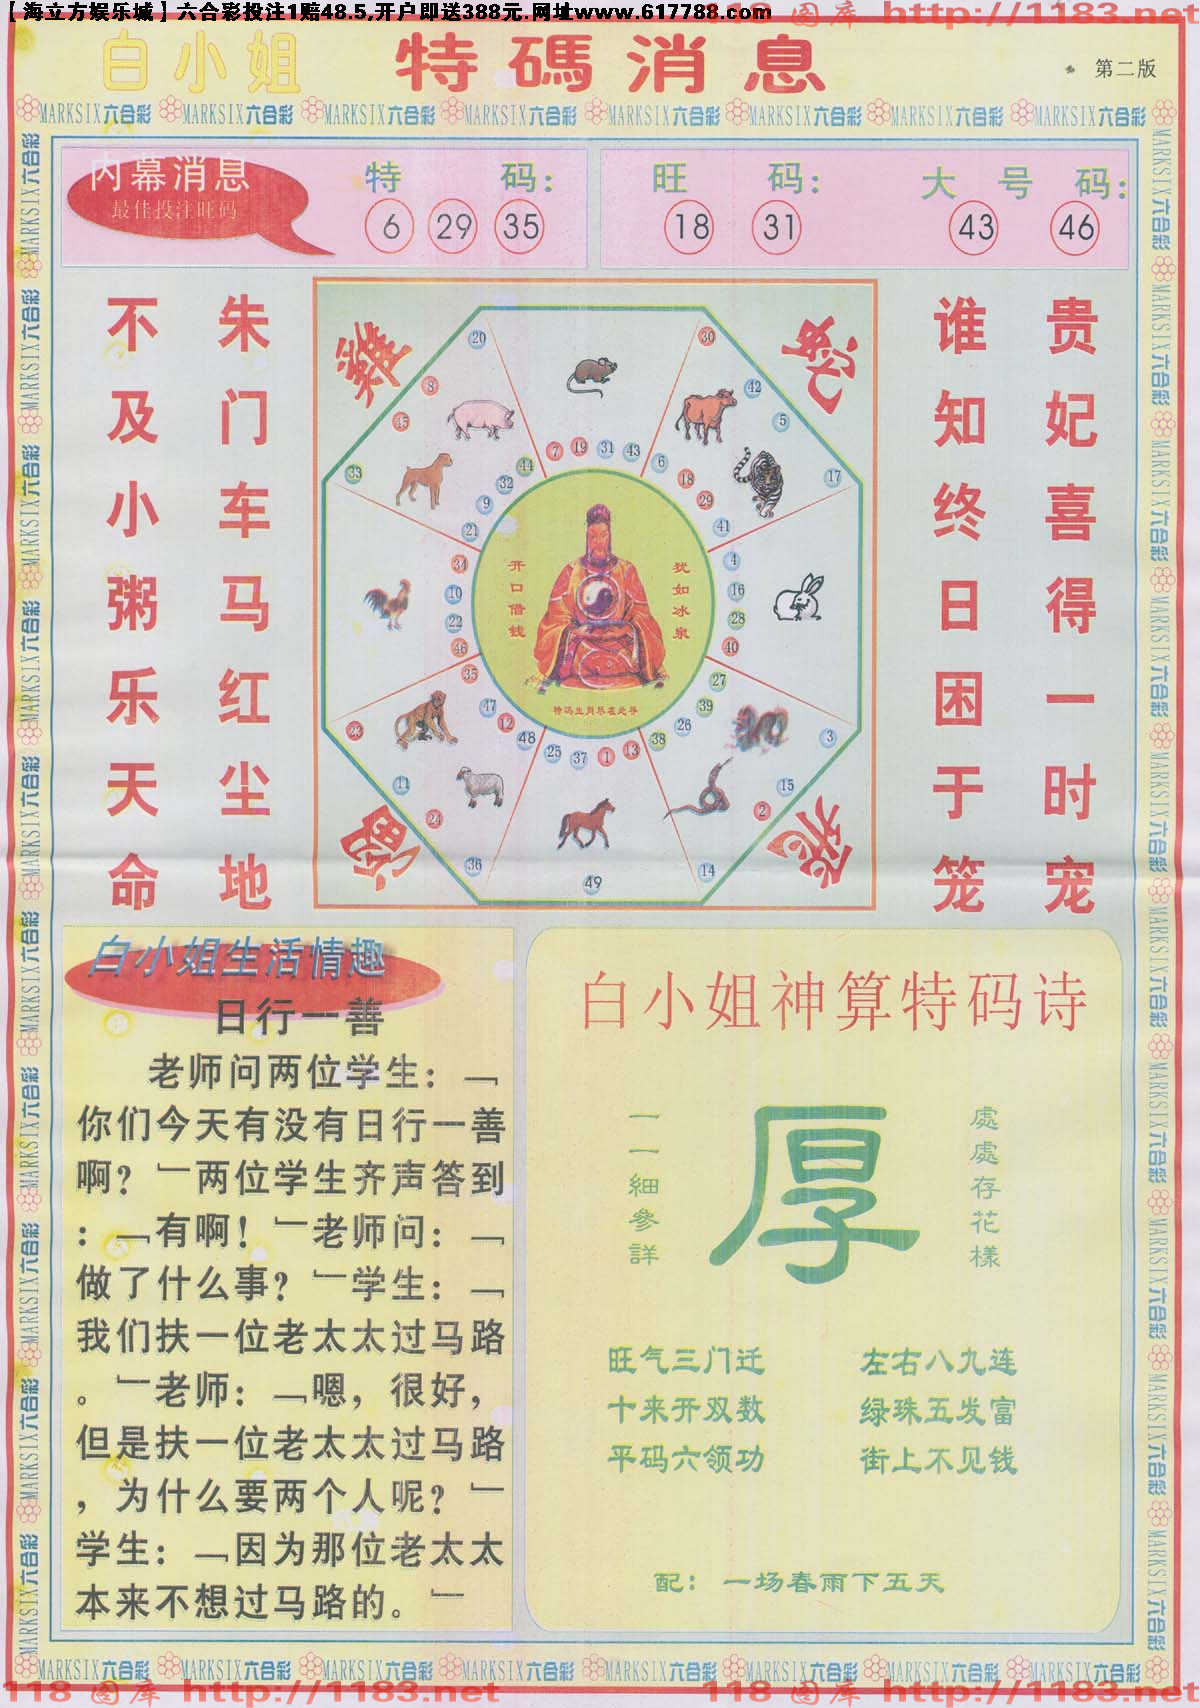 【海立方娱乐城】六合彩投注1赔48.5,开户即送388元.网址www.617788.com
118 图库 http://1183.net
白小姐 特碼消息
第二版
MARKSIX六合彩 MARKSIX六合彩 MARKSIX六合彩 MARKSIX六合彩 MARKSIX六合彩 MARKSIX六合彩 MARKSIX六合彩 MARKSIX六合彩
内幕消息
最佳投注旺码
特 码:
6 29 35
旺 码:
18 31
大 号 码:
43 46
朱门车马红尘地
不及小粥乐天命
贵妃喜得一时宠
谁知终日困于笼
雞
蛇
龍
20 8 45 33
30 42 5 17
7 19 31 43
6 18 29 41
4 16 28 40
27 39 26 38
3 15 2 14
13 1 37 25
49
48 12 47 35
23 11 24 36
46 22 10 34
21 9 32 44
开口借钱
犹如冰泉
特码生肖尽在此寻
白小姐生活情趣
日行一善
老师问两位学生：﹁
你们今天有没有日行一善
啊？﹂两位学生齐声答到
：﹁有啊！﹂老师问：﹁
做了什么事？﹂学生：﹁
我们扶一位老太太过马路
。﹂老师：﹁嗯，很好，
但是扶一位老太太过马路
，为什么要两个人呢？﹂
学生：﹁因为那位老太太
本来不想过马路的。﹂
白小姐神算特码诗
處處存花樣
厚
一一細參詳
旺气三门迁 左右八九连
十来开双数 绿珠五发富
平码六领功 街上不见钱
配：一场春雨下五天
MARKSIX六合彩 MARKSIX六合彩 MARKSIX六合彩 MARKSIX六合彩 MARKSIX六合彩 MARKSIX六合彩 MARKSIX六合彩 MARKSIX六合彩
118 图库 http://1183.net 118 图库 http://1183.net